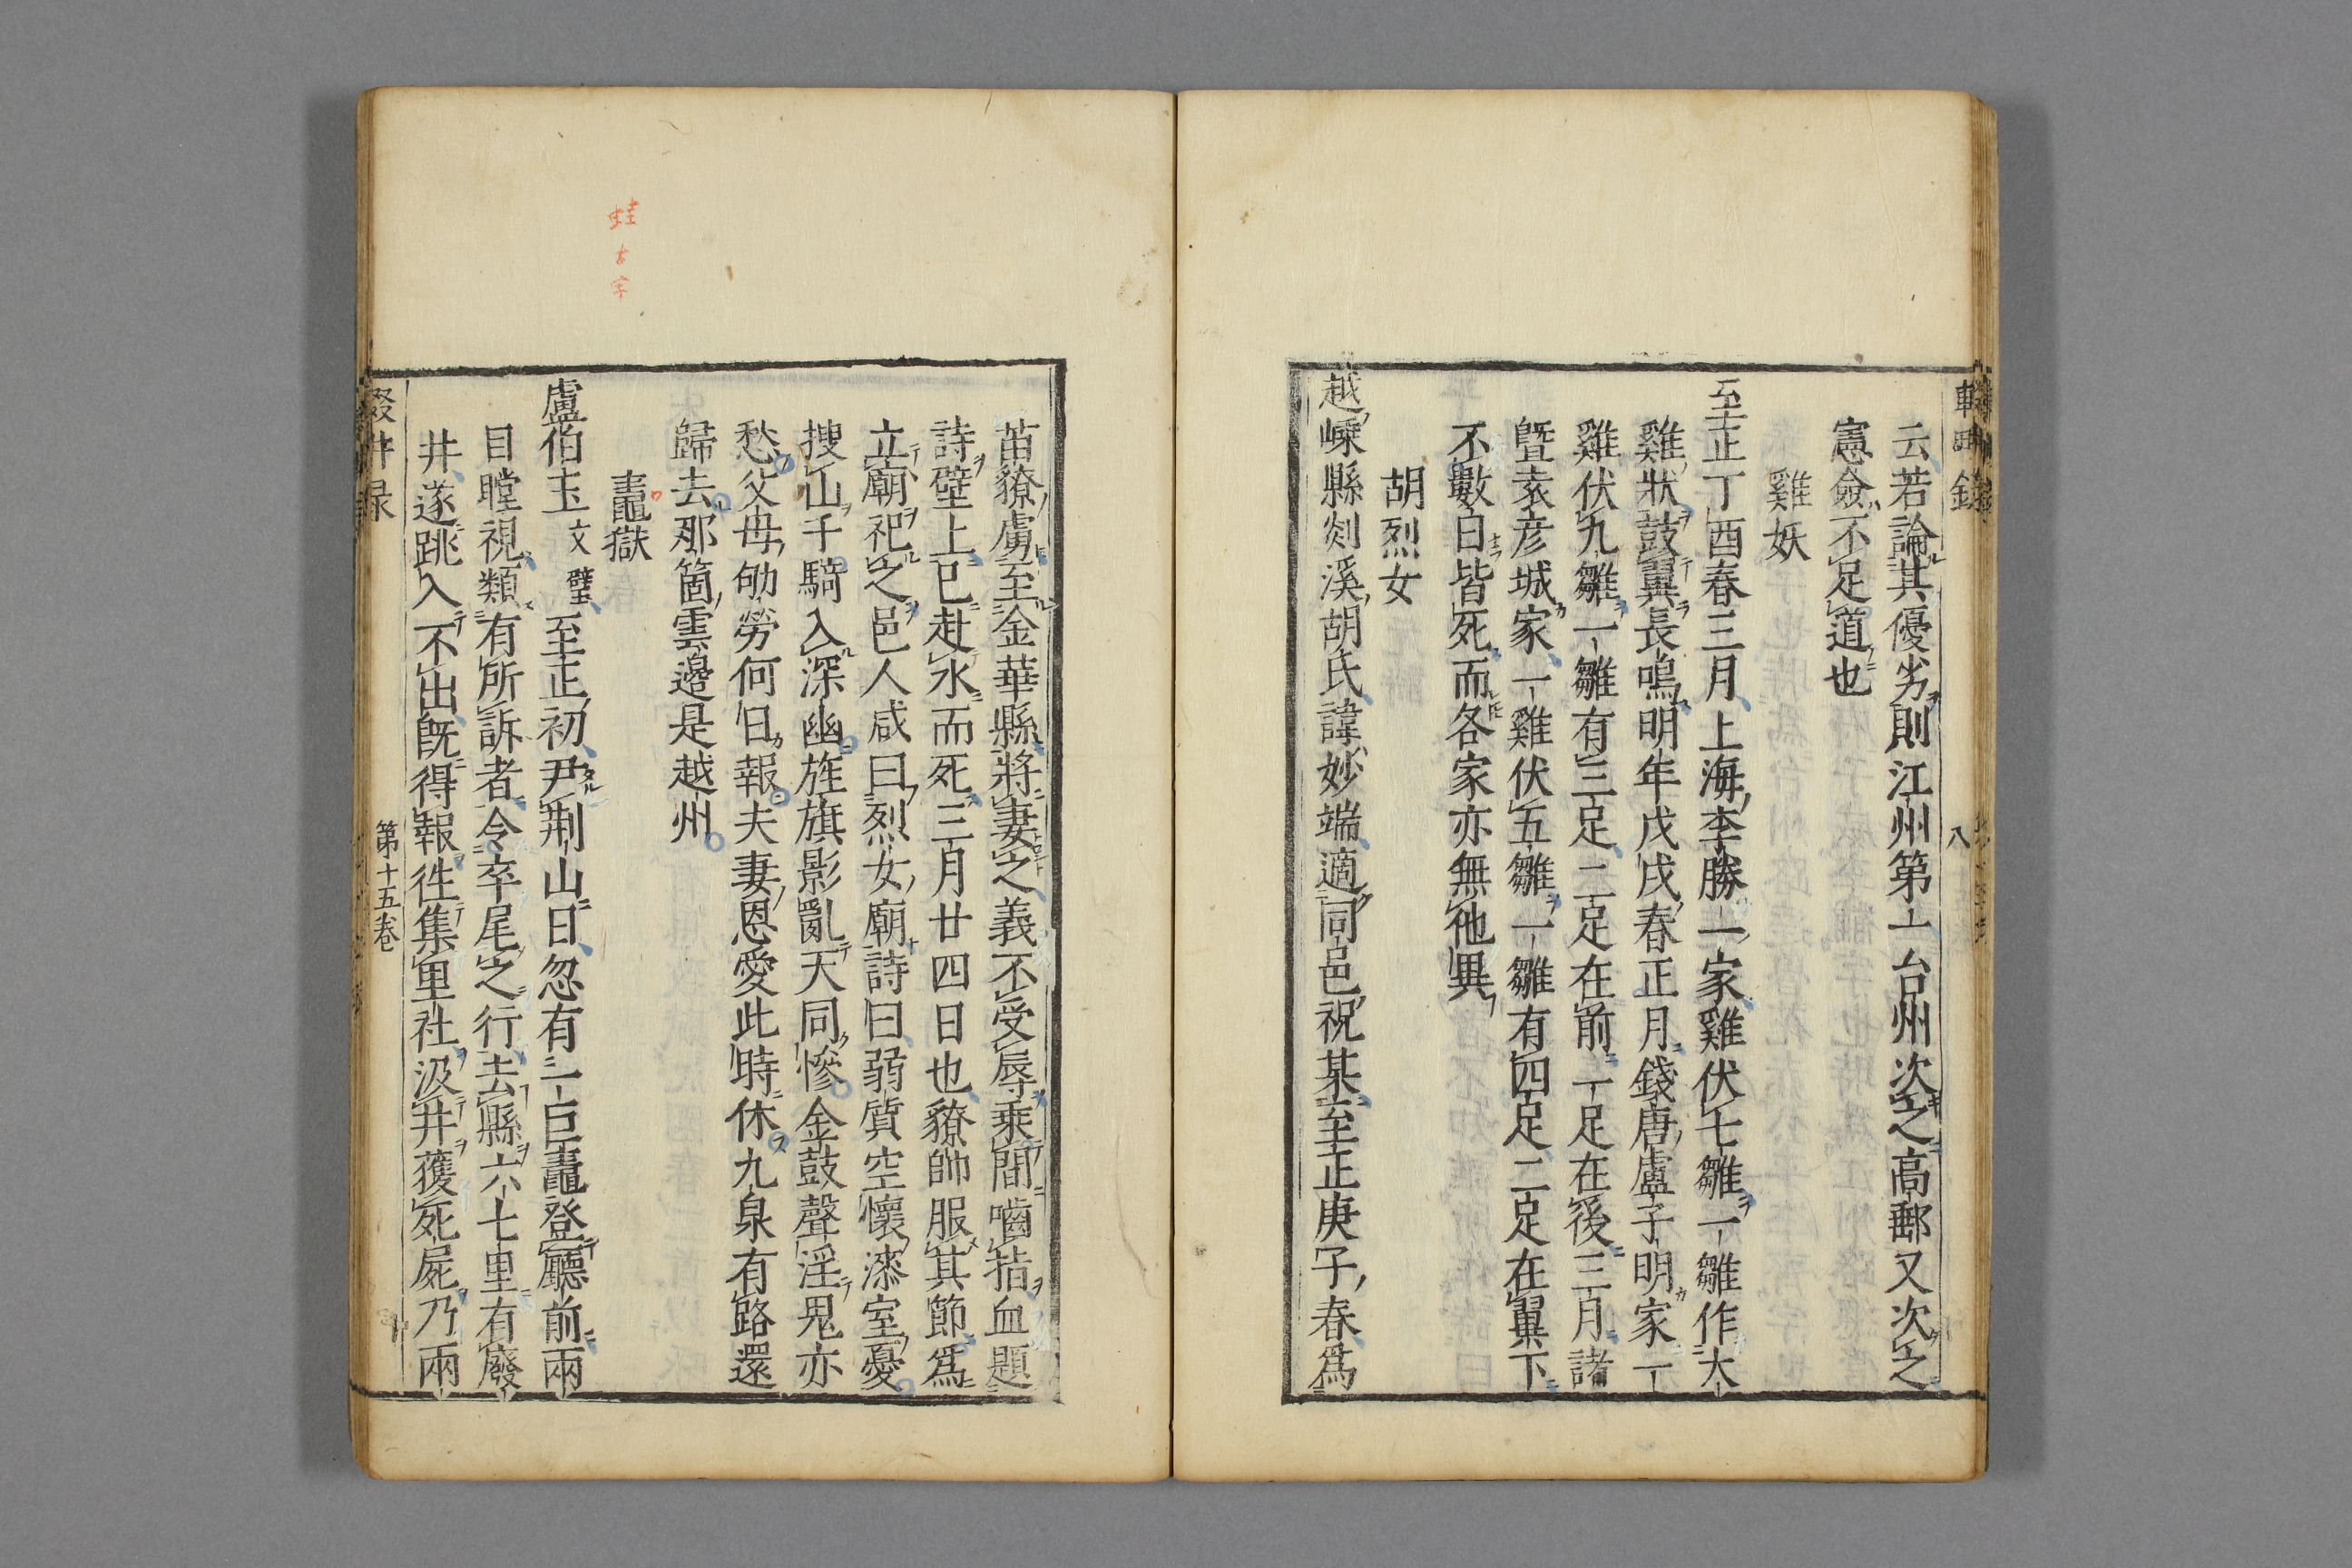 云若論其優劣則江州第一台州次之高郵又次之
憲僉不足道也
雞妖
至正丁酉春三月上海李勝一家雞伏七雛一雛作大
雞狀鼓翼長鳴明年戊戌春正月錢唐盧子明家一
雞伏九雛一雛有三足二足在前一足在後三月諸
曁袁彦城家一雞伏五雛一雛有四足二足在翼下
不數日皆死而各家亦無他異
胡烈女
越嵊縣剡溪胡氏諱妙端適同邑祝某至正庚子春爲
八
苗獠虜至金華縣將妻之義不受辱乘間嚙指血題
詩壁上已赴水而死三月廿四日也獠帥服其節爲
立廟祀之邑人咸曰烈女廟詩曰弱質空懷漆室憂
搜山千騎入深幽旌旗影亂天同慘金鼓聲淫鬼亦
愁父母劬勞何日報夫妻恩愛此時休九泉有路還
歸去那箇雲邊是越州
鼃獄
盧伯玉文璧至正初尹荆山日忽有二巨鼃登廳前兩
目瞠視類有所訴者令卒尾之行去縣六七里有廢
井遂跳入不出旣得報徃集里社汲井獲死屍乃兩
第十五卷
蛙古字